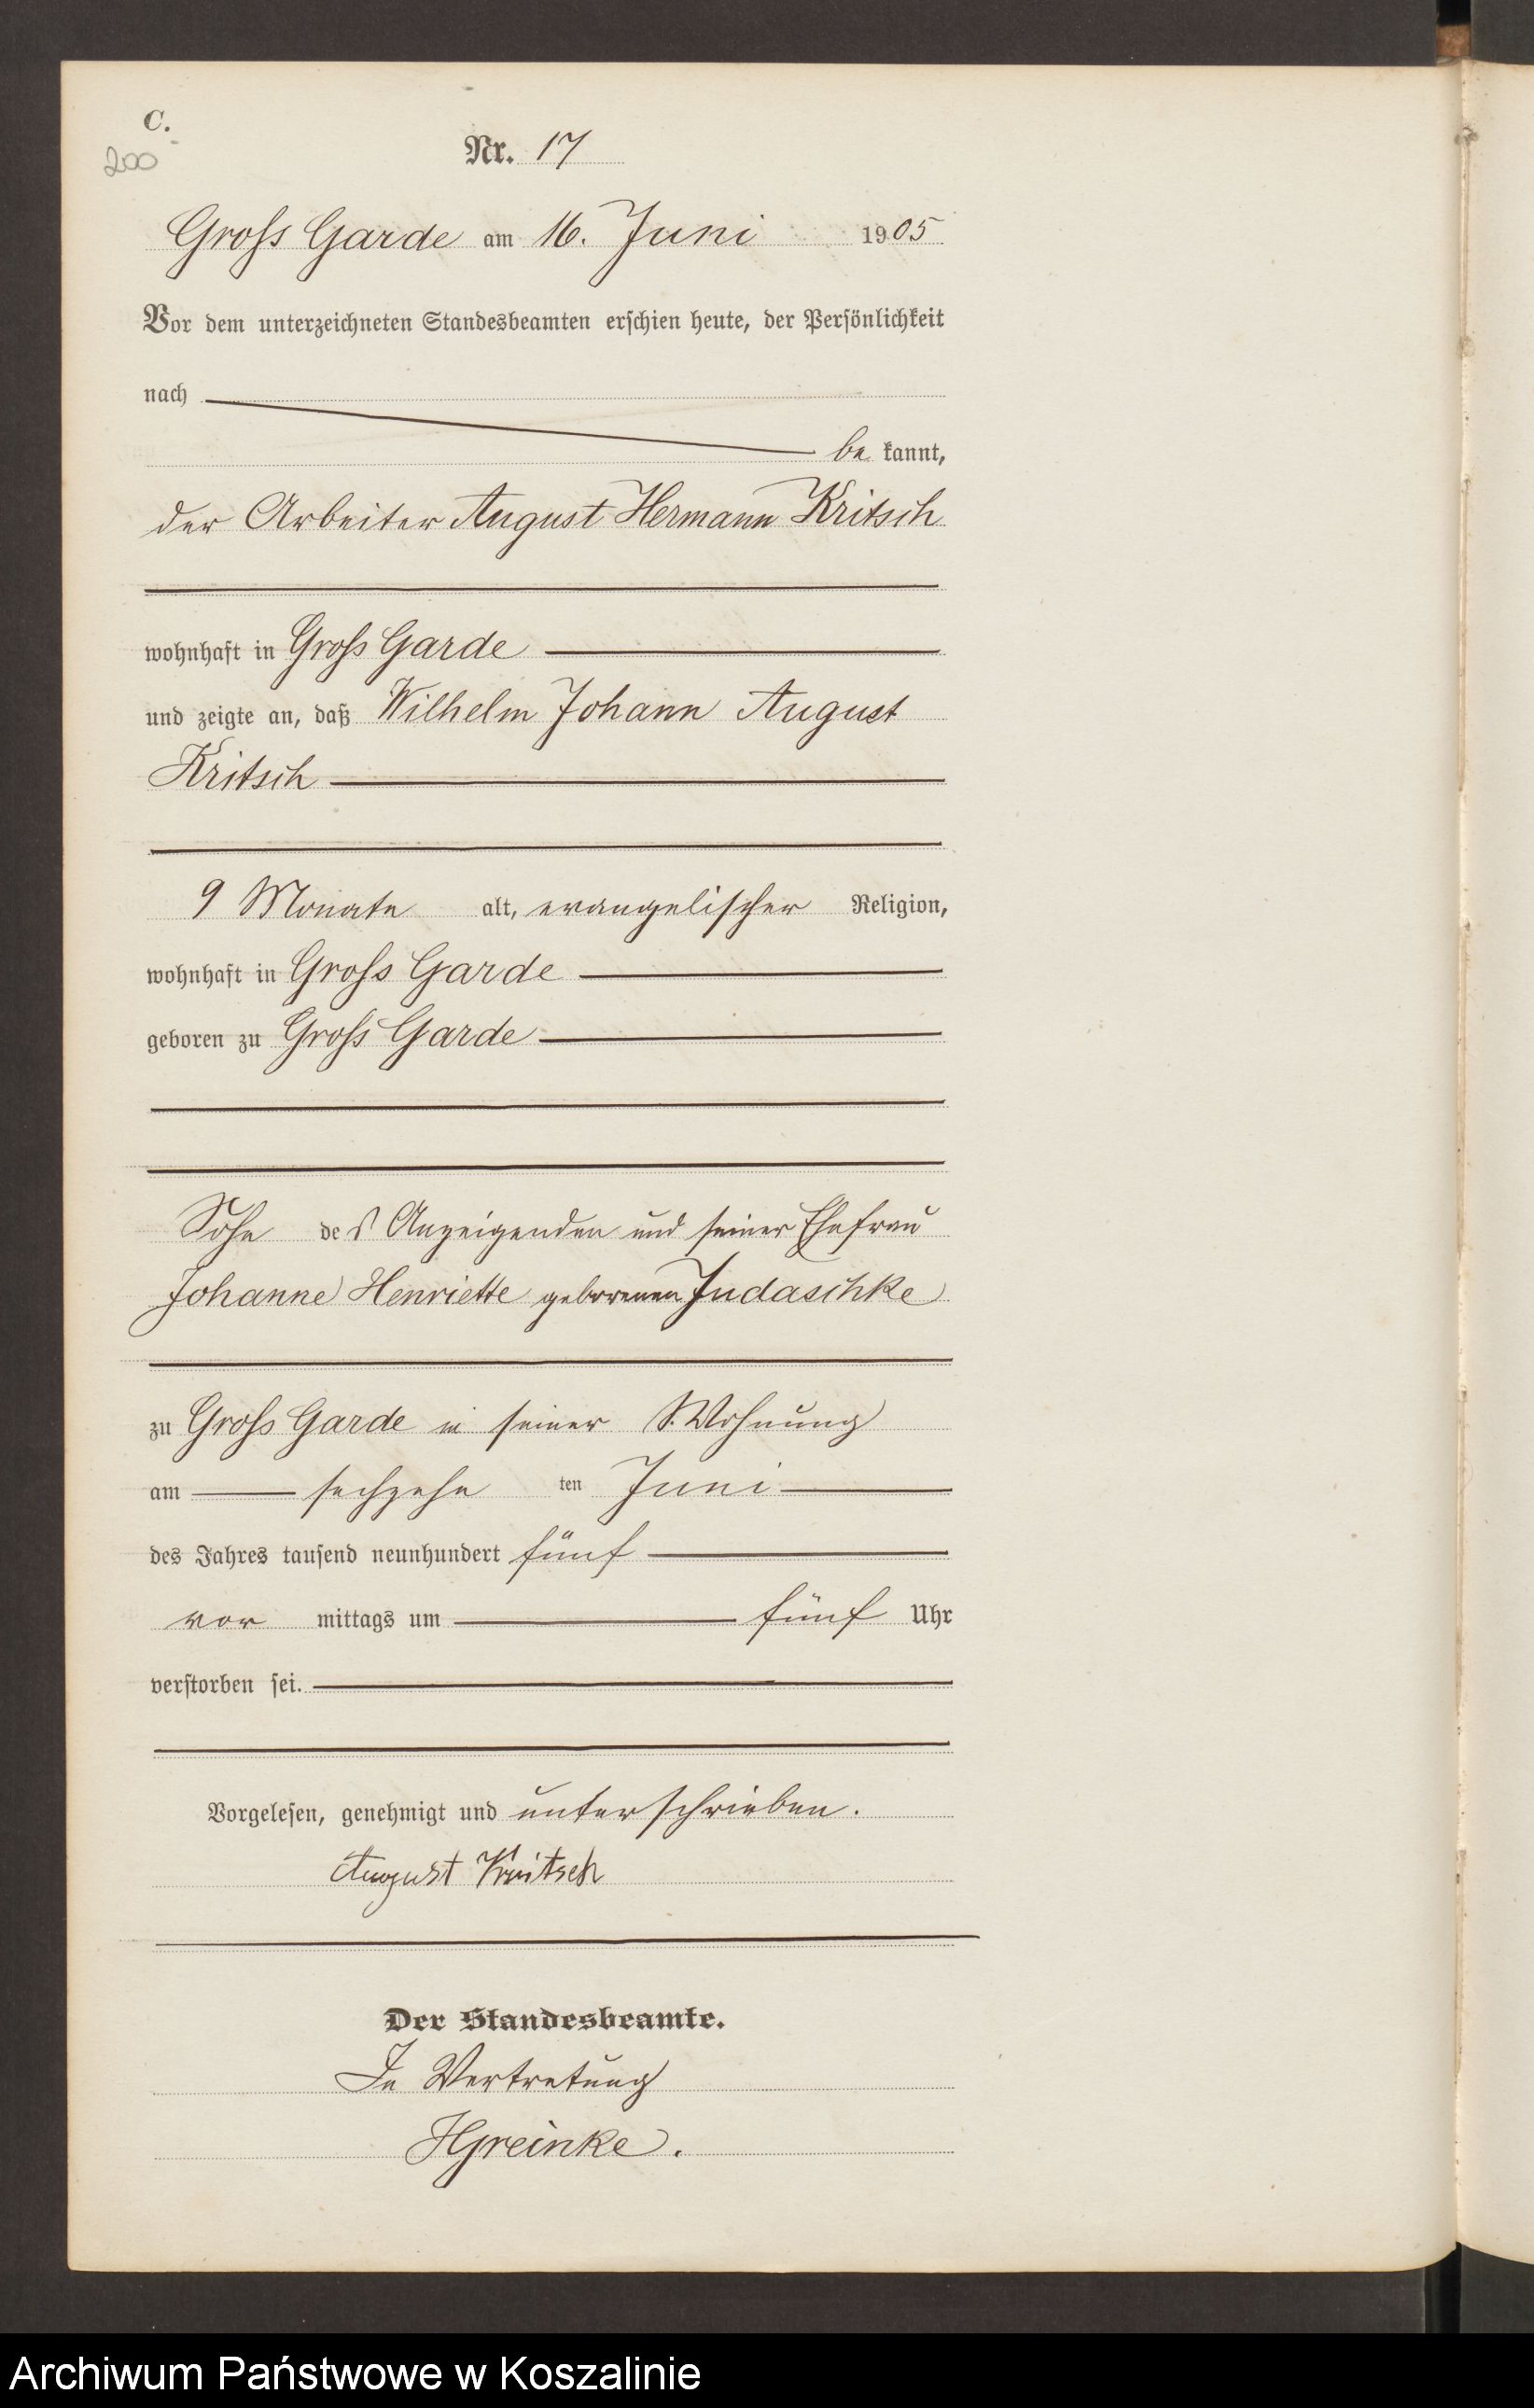 C.
200
Nr. 17
Gross Garde am 16. Juni 1905
Vor dem unterzeichneten Standesbeamten erschien heute, der Persönlichkeit
nach
be kannt,
der Arbeiter August Hermann Kritsch
wohnhaft in Gross Garde
und zeigte an, daß Wilhelm Johann August
Kritsch
9 Monate alt, evangelischer Religion,
wohnhaft in Gross Garde
geboren zu Gross Garde
Sohn des Anzeigenden und seiner Ehefrau
Johanne Henriette geborenen Judaschke
zu Gross Garde in seiner Wohnung
am sechzehn ten Juni
des Jahres tausend neunhundert fünf
vor mittags um fünf Uhr
verstorben sei.
Vorgelesen, genehmigt und unterschrieben.
August Kritsch
Der Standesbeamte.
In Vertretung
Greinke.
Archiwum Państwowe w Koszalinie